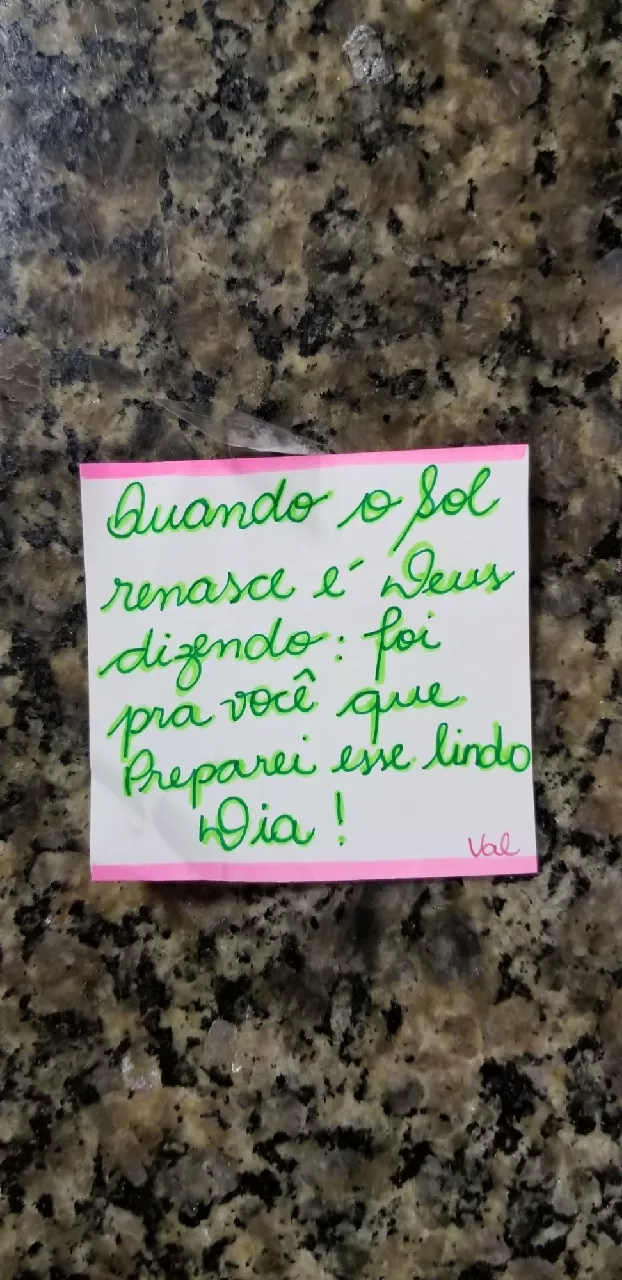 Quando o Sol
renasce é Deus
dizendo: foi
pra você que
Preparei esse lindo
Dia!
Val